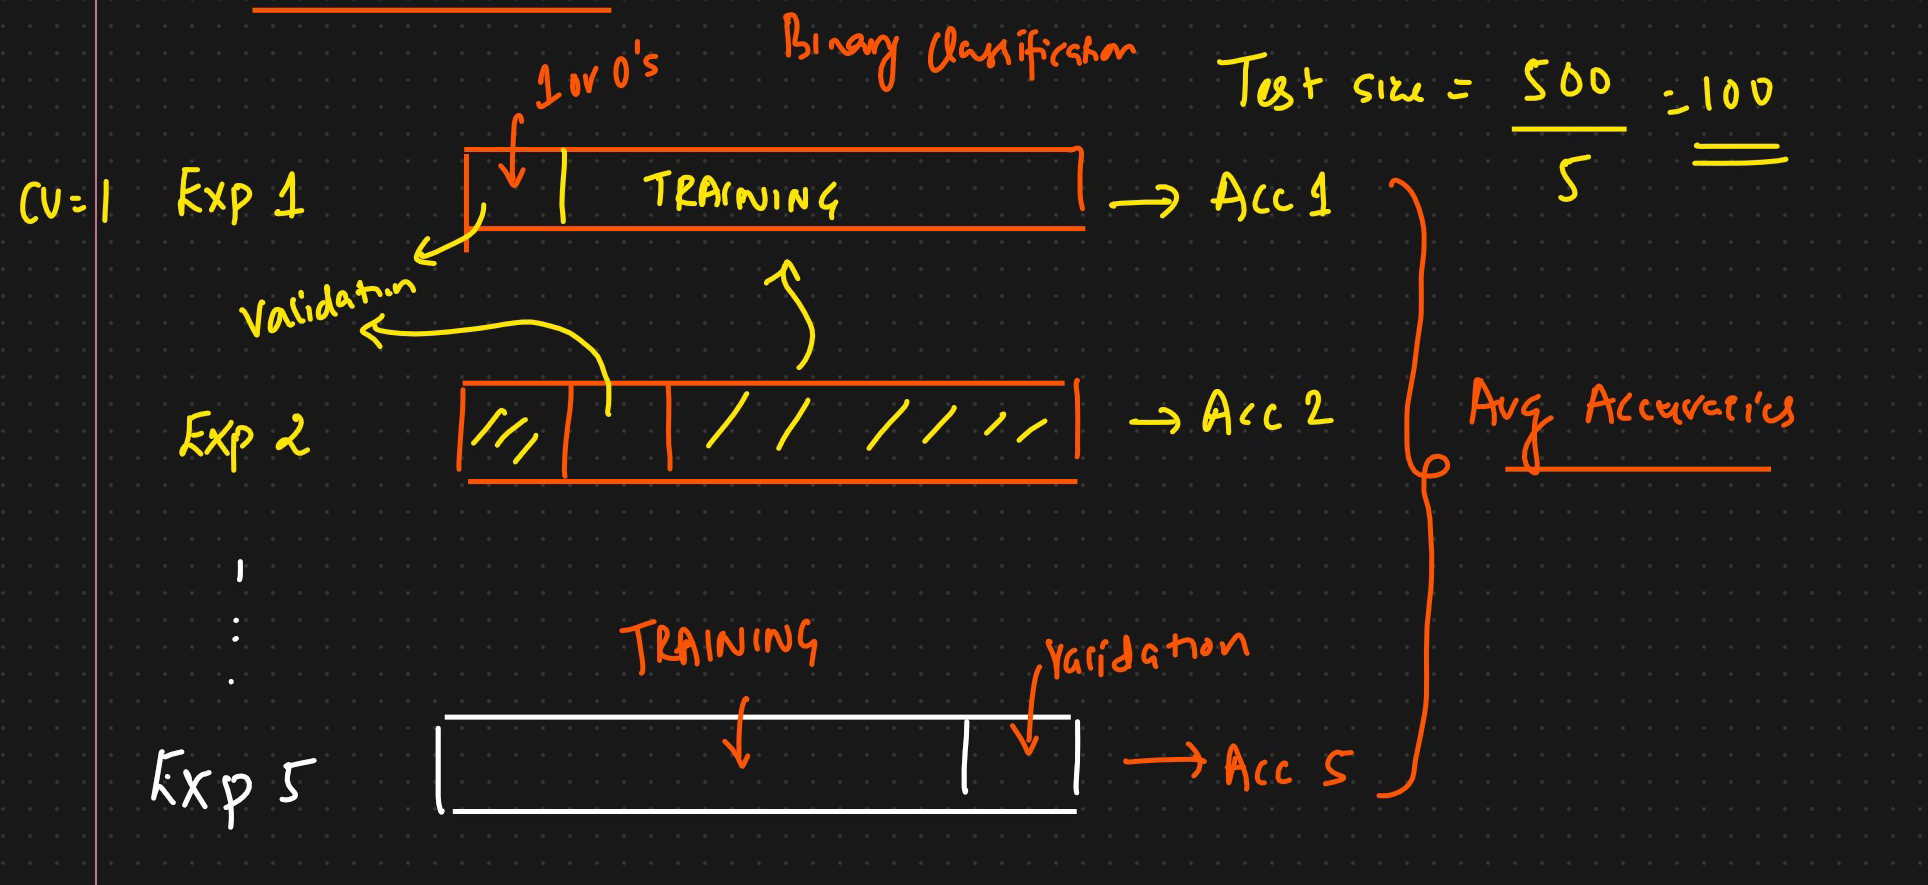 Binary Classification
1 or 0's
Test size = 500 / 5 = 100
CV=1 Exp 1 TRAINING → Acc 1
Validation
Exp 2 → Acc 2 Avg Accuracies
TRAINING Validation
Exp 5 → Acc 5